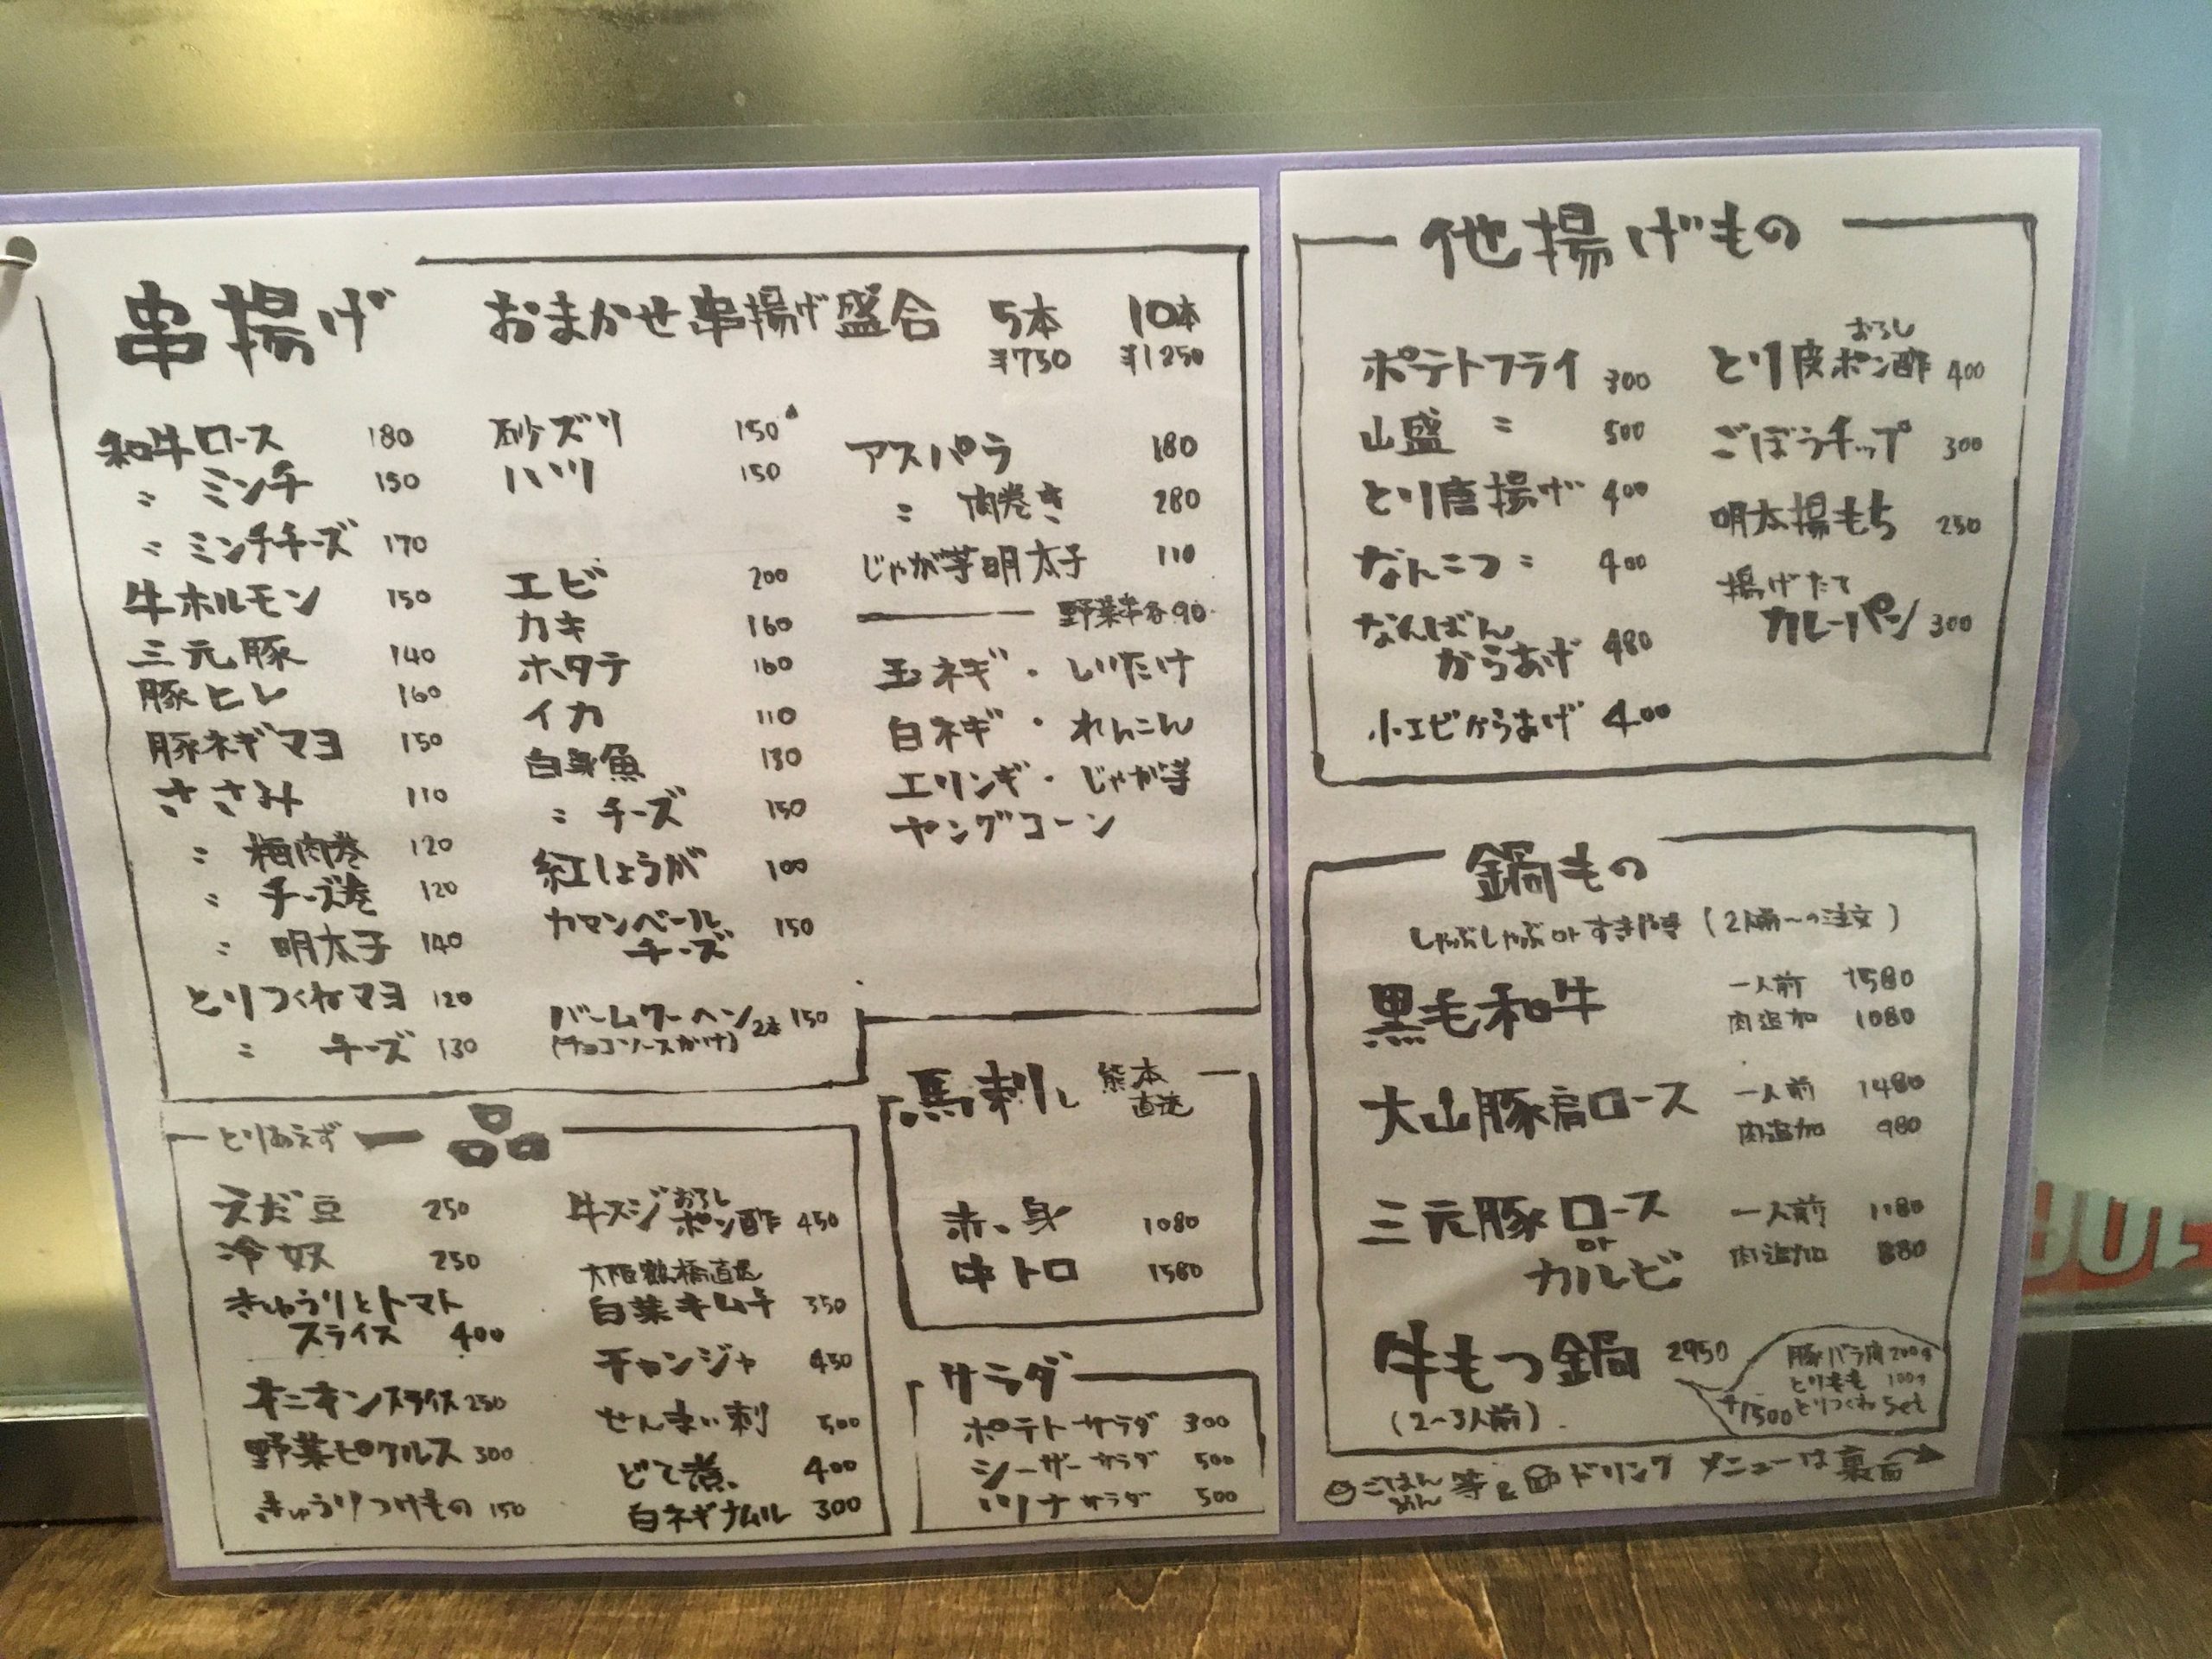 串揚げ おまかせ串揚げ盛合 5本 10本
¥750 ¥1250
和牛ロース 180
〃 ミンチ 150
〃 ミンチチーズ 170
牛ホルモン 150
三元豚 140
豚ヒレ 160
豚ネギマヨ 150
ささみ 110
〃 梅肉巻 120
〃 チーズ巻 120
〃 明太子 140
とりつくねマヨ 120
〃 チーズ 130
砂ズリ 150
ハツ 150
エビ 200
カキ 160
ホタテ 160
イカ 110
白身魚 130
〃 チーズ 150
紅しょうが 100
カマンベール
チーズ 150
バームクーヘン 2本 150
(チョコソースがけ)
アスパラ 180
〃 肉巻き 280
じゃが芋明太子 110
野菜串各90
玉ネギ・しいたけ
白ネギ・れんこん
エリンギ・じゃが芋
ヤングコーン
とりあえず 一品
えだ豆 250
冷奴 250
きゅうりとトマト
スライス 400
オニオンスライス 250
野菜ピクルス 300
きゅうりつけもの 150
牛スジおろしポン酢 450
大阪鶴橋直送
白菜キムチ 350
チャンジャ 450
せんまい刺 500
どて煮 400
白ネギナムル 300
馬刺し 熊本直送
赤身 1080
中トロ 1580
サラダ
ポテトサラダ 300
シーザーサラダ 500
ツナサラダ 500
他揚げもの
ポテトフライ 300
山盛 〃 500
とり唐揚げ 400
なんこつ 〃 400
なんばん
からあげ 480
小エビからあげ 400
とり皮おろしポン酢 400
ごぼうチップ 300
明太揚もち 250
揚げたて
カレーパン 300
鍋もの
しゃぶしゃぶ or すきやき (2人前〜の注文)
黒毛和牛 一人前 1580
肉追加 1080
大山豚肩ロース 一人前 1480
肉追加 980
三元豚ロース 一人前 1180
or
カルビ 肉追加 880
牛もつ鍋 2950
(2〜3人前)
豚バラ肉200g
とりもも 100g
+1500 とりつくね set
ごはん めん 等 & ドリンク メニューは裏面